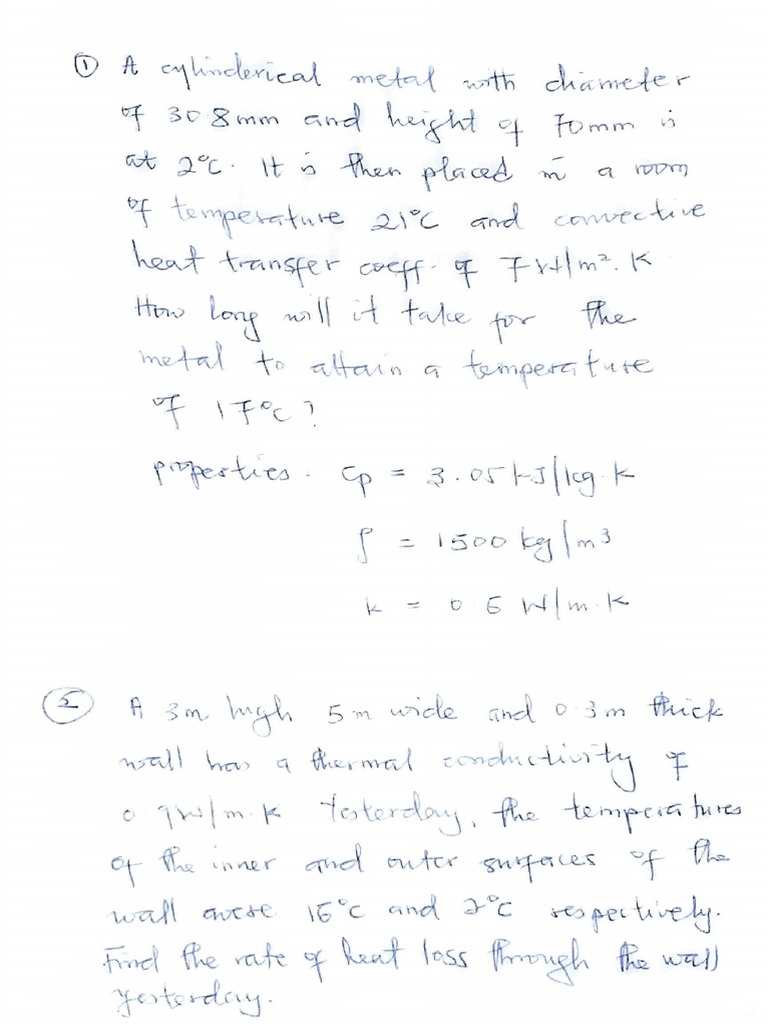 ① A cylinderical metal with diameter
of 30.8mm and height of 70mm is
at 2°C. It is then placed in a room
of temperature 21°C and convective
heat transfer coeff. of 7W/m². K
How long will it take for the
metal to attain a temperature
of 17°C?
properties: Cp = 3.05 kJ/kg.K
ρ = 1500 kg/m³
k = 0.6 W/m.K
② A 3m high 5m wide and 0.3m thick
wall has a thermal conductivity of
0.9W/m.K Yesterday, the temperatures
of the inner and outer surfaces of the
wall were 16°C and 2°C respectively.
Find the rate of heat loss through the wall
yesterday.